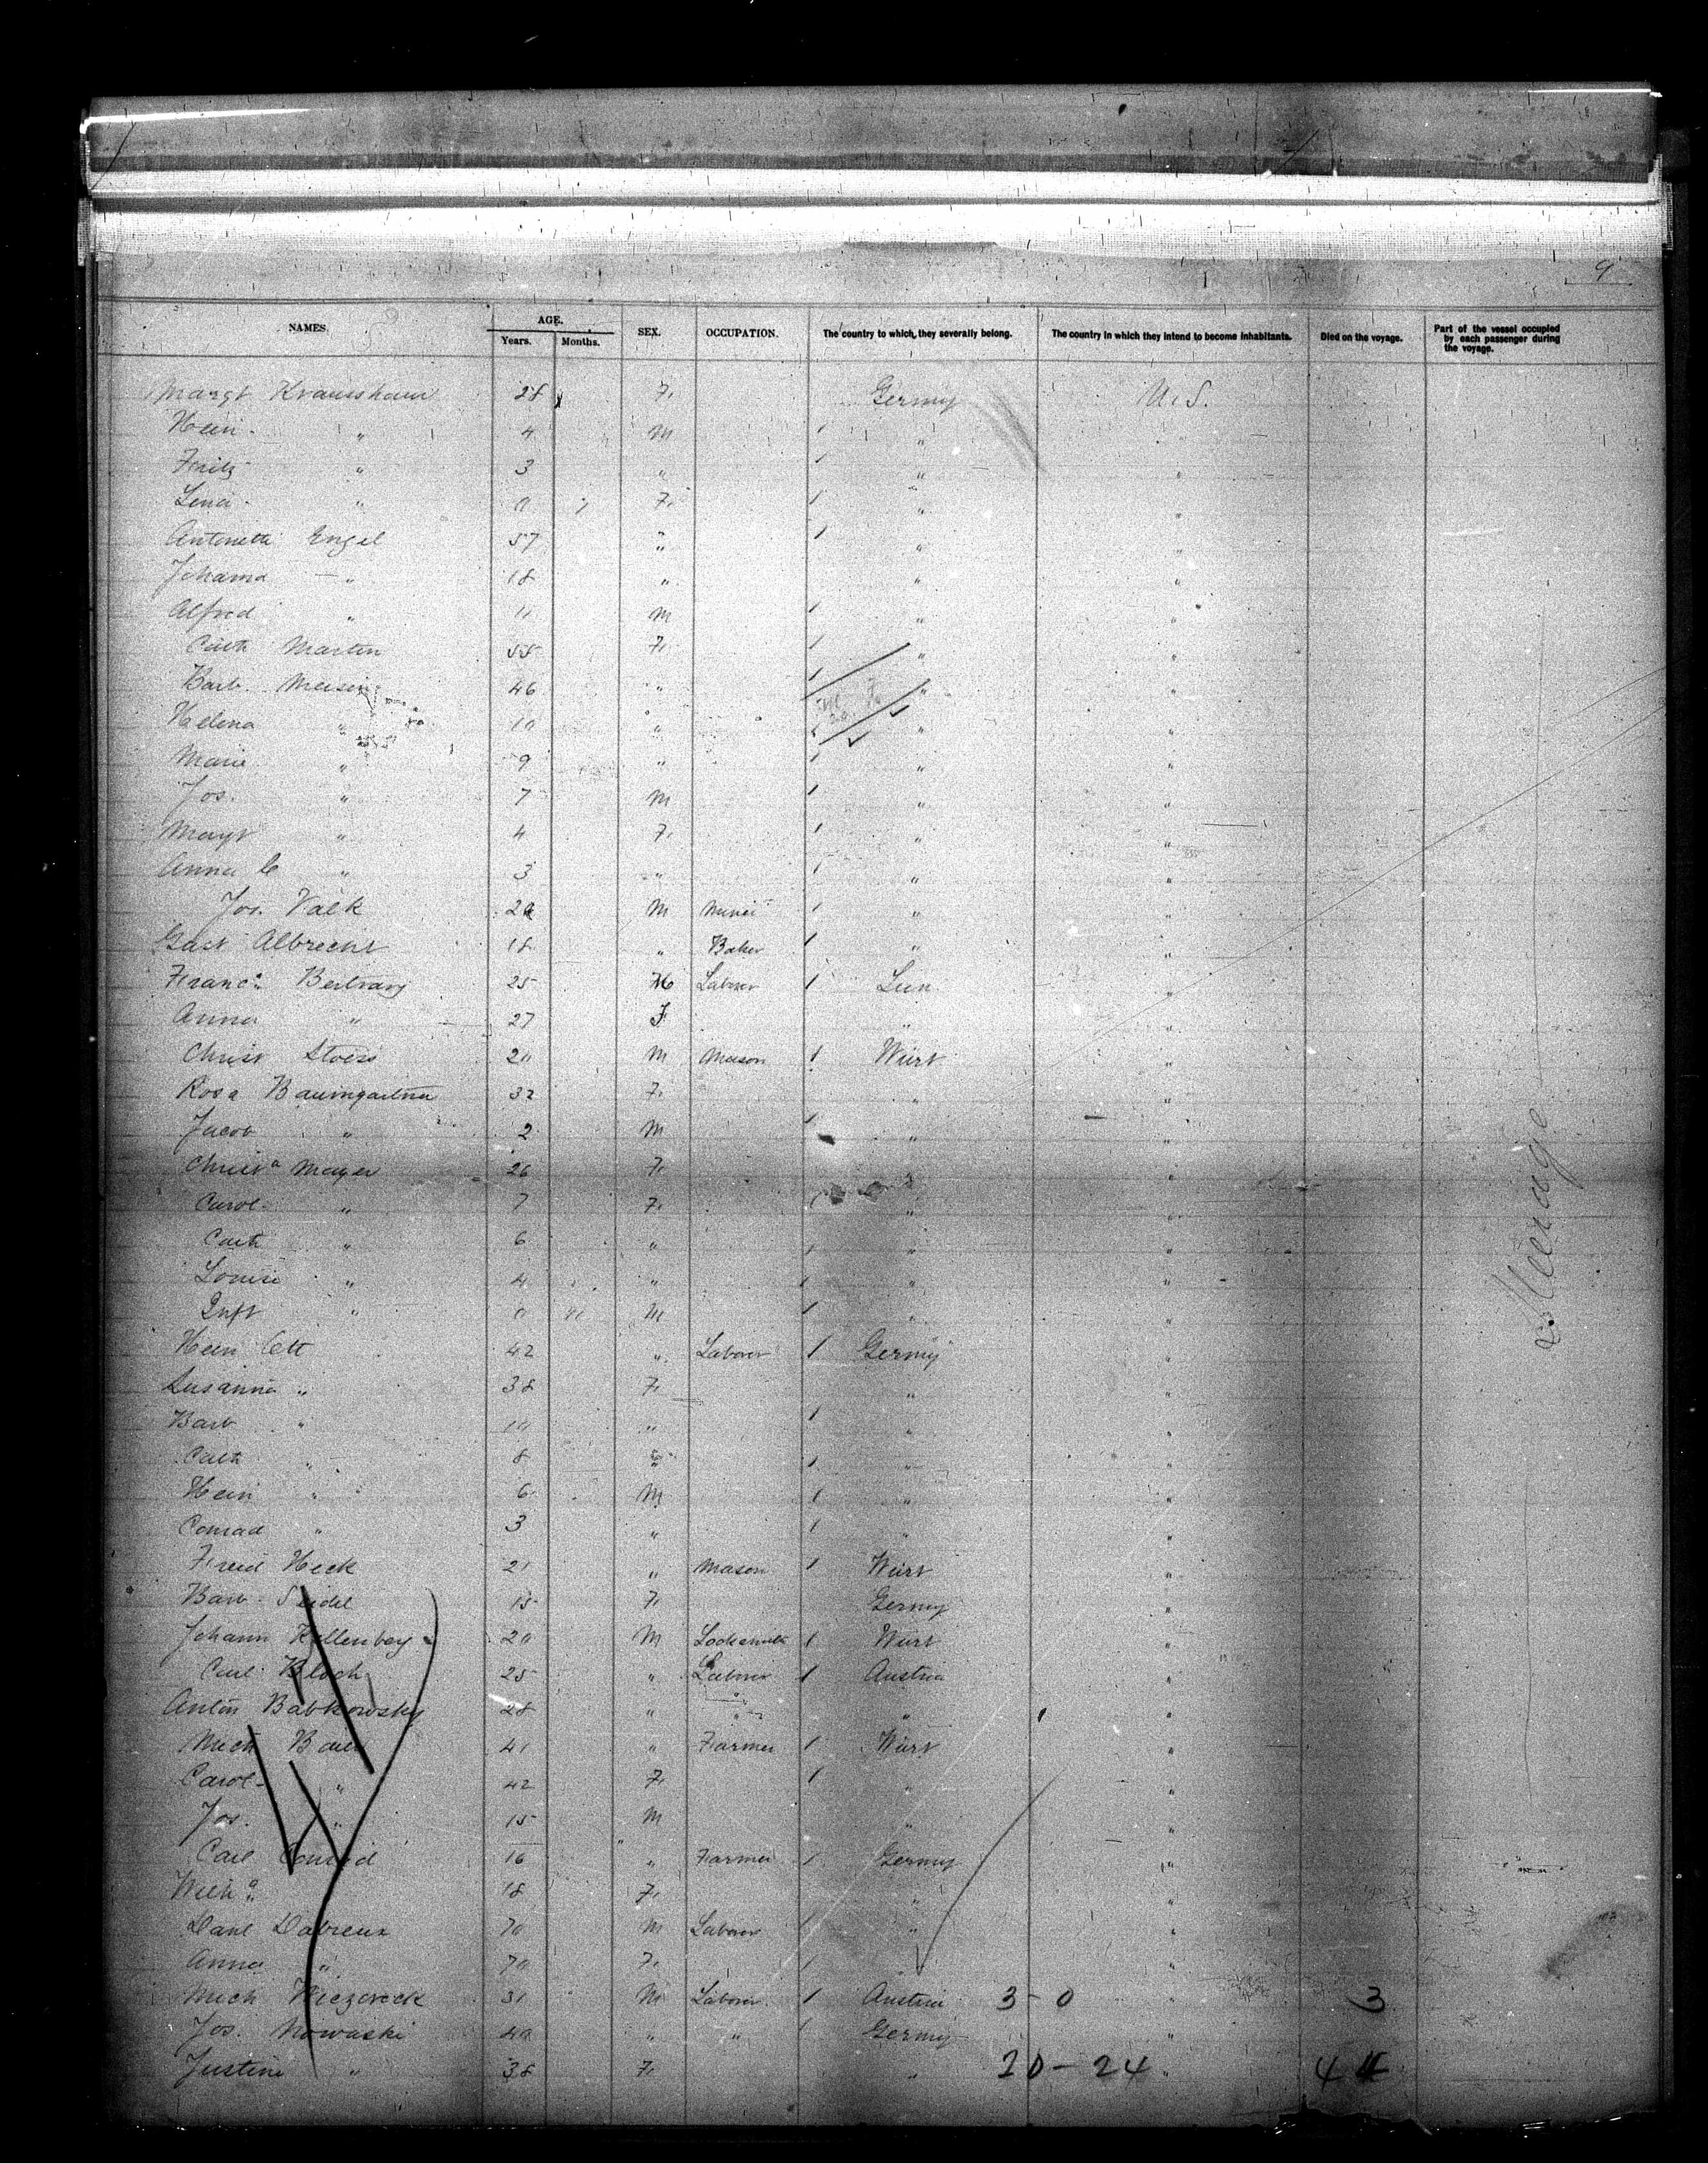 9
NAMES. AGE. SEX. OCCUPATION. The country to which they severally belong. The country in which they intend to become inhabitants. Died on the voyage. Part of the vessel occupied by each passenger during the voyage.
Years. Months.
Margt Kraushaar 28 F. Germy U.S.
Hein. " 4 M 1 "
Fritz " 3 " 1 " "
Lena " 0 F. 1 " "
Antonetti Engel 57 " 1 " "
Johanna " 18 " " "
Alfred " 11 M 1 " "
Cath Martin 55 F. 1 " "
Barb. 46 " 1 " "
Helena " 10 " " "
Marie " 9 " 1 " "
Jos. " 7 M 1 " "
Margt " 4 F. 1 " "
Anna C " 3 " 1 " "
Jos. Valk M Miner 1 " "
Gust Albrecht 18 " Baker 1 " "
Franc. 25 M Laborer 1 "
Anna " 27 F " "
Christ Stoess 20 M Mason 1 Würt "
Rosa Baumgartner 32 F. " "
Jacob " 2 M 1 " "
Christa Mayer 26 F. " "
Carol. " 7 F. 1 " "
Cath " 6 " 1 " "
Louise " 4 " 1 " "
Inft " 0 M 1 " "
Hein Ott 42 " Laborer 1 Germy "
Susanna " 38 F. " "
Barb " 10 " 1 " "
Cath " 8 " 1 " "
Hein " 6 M 1 " "
Conrad " 3 " 1 " "
Fried Heck 21 " Mason 1 Würt "
Barb. Seidel 15 F. Germy "
Johann Kellenberg 20 M Locksmith 1 Würt "
Carl Bloch 25 " Laborer 1 Austria "
Anton Babkowsky 28 " " " "
Mich Bauer 41 " Farmer 1 Würt "
Carol. " 42 F. 1 " "
Jos. " 15 M " "
Carl Conrad 16 " Farmer 1 Germy "
Wilh 18 F. " "
70 M Laborer 1 " "
Anna " 70 F. 1 " "
Mich Wieczoreck 31 M Laborer 1 Austria 3-0 " 3
Jos. Nowaski 40 " " 1 Germy "
Justine " 38 F. " 20-24 " 44
Steerage